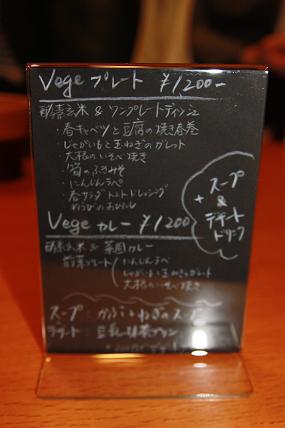 Vege プレート ¥1,200-
酵素玄米 & ワンプレートディッシュ
・春キャベツと豆腐の焼き春巻
・じゃがいもと玉ねぎのガレット
・大根のいそべ焼き
・筍のふきみそ
・にんじんラペ
・春サラダ トマトドレッシング
・わらびのおひたし
+ スープ
&
デザート
ドリンク
Vege カレー ¥1200
酵素玄米 & 菜園カレー
前菜プレート
にんじんラペ
じゃがいも玉ねぎのガレット
大根のいそべ焼き
スープ: かぶとねぎのスープ
デザート: 豆乳抹茶プリン